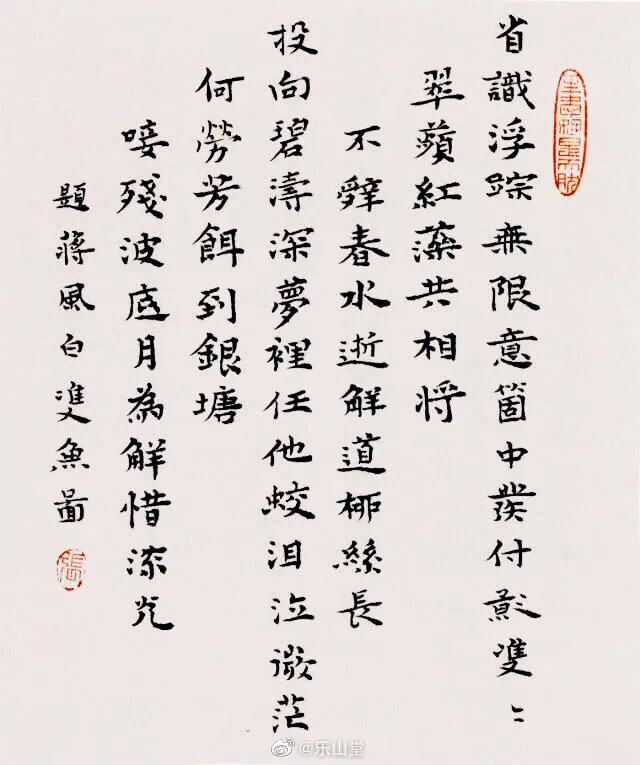 省識浮踪無限意箇中發付影雙〻
翠蘋紅藻共相將
不辭春水逝解道柳絲長
投向碧濤深夢裡任他蛟泪泣微茫
何勞芳餌到銀塘
唼殘波底月為解惜流光
題蔣風白雙魚圖
張
@乐山堂